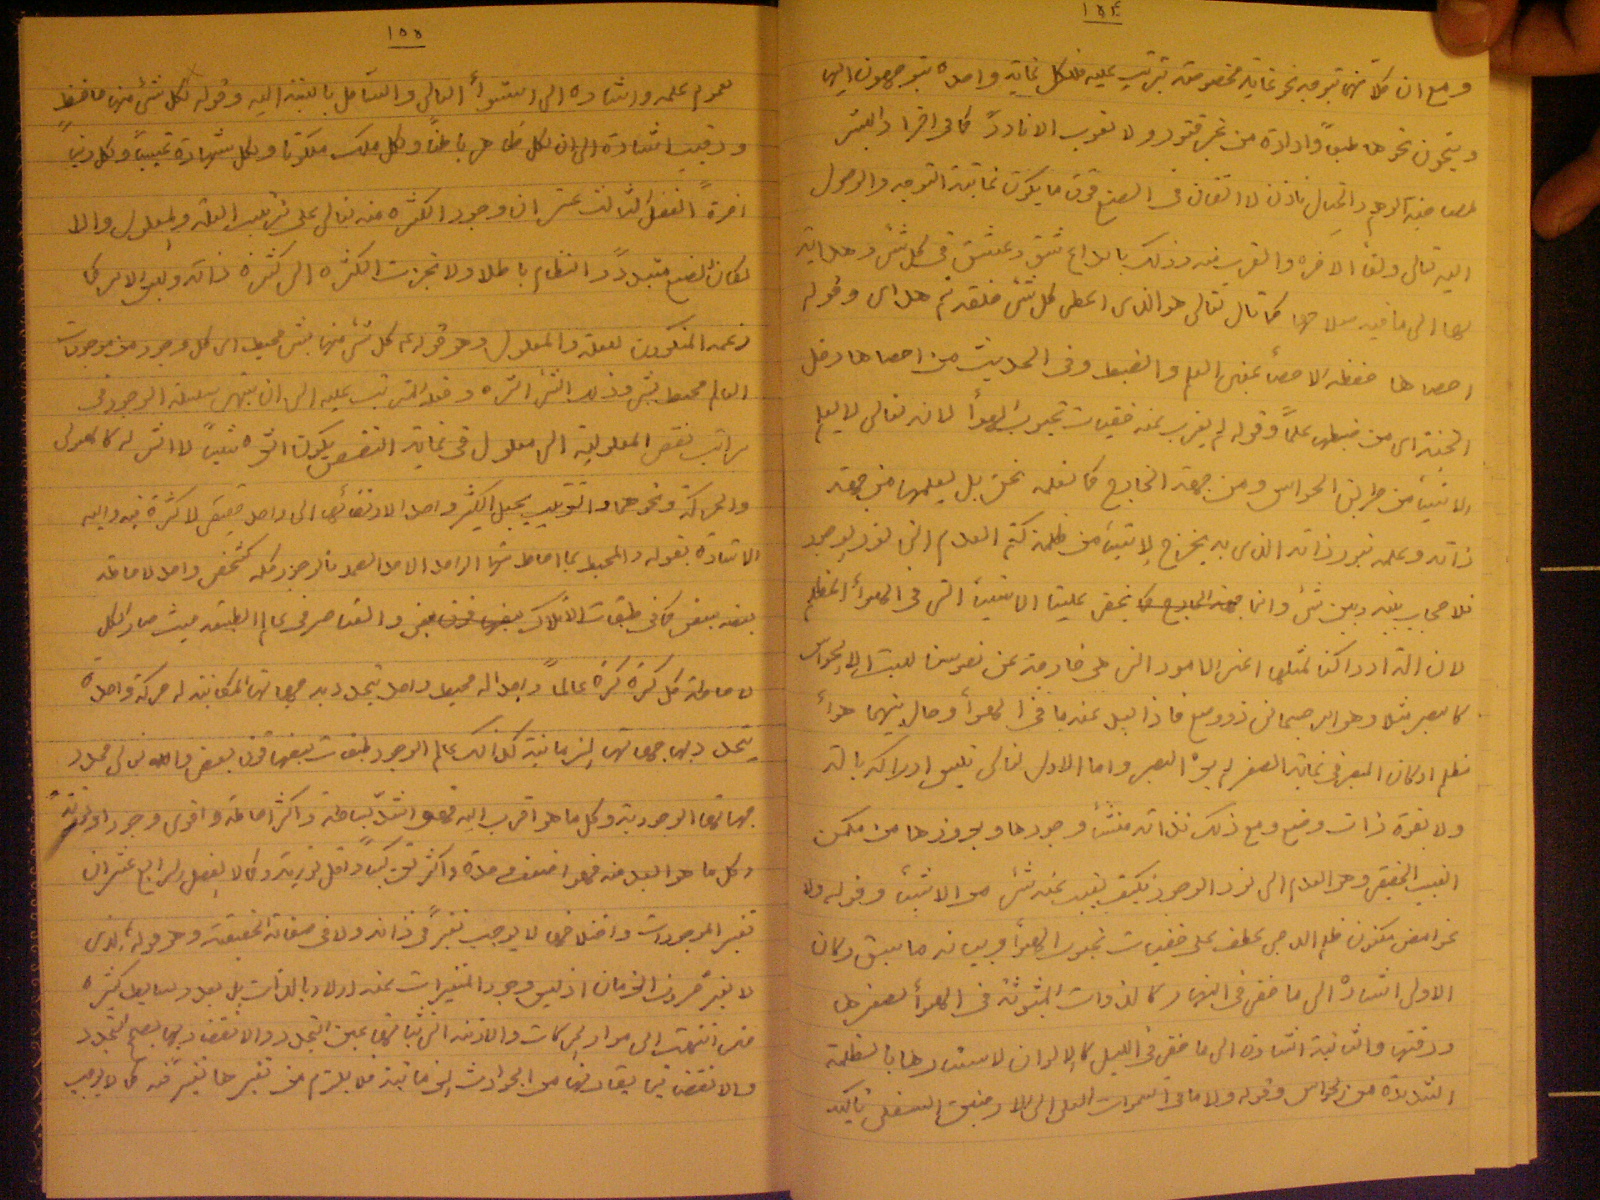 ١٥٤
ومع ان كلا منها يتوجه نحو غاية مخصوصة يترتب عليه فلكل غاية واحدة يتوجهون اليها
وينحون نحوها طبعاً وارادة من غير فتور ولا لغوب الا نادراً كما في افراد البشر
لمصاحبة الوهم والخيال فاذن لا اتقان في الصنع فوق ما يكون غايته التوجه والوصول
اليه تعالى ولقاء الاخرة والقرب منه وذلك بايداع شوق وعشق في كل شئ وهدايته
لها الى ما فيه صلاحها كما قال تعالى هو الذى اعطى كل شئ خلقه ثم هدى وقوله
احصاها حفظه الاحصاء بمعنى العلم والضبط وفى الحديث من احصاها دخل
الجنة اى من ضبطها علماً وقوله لم يعزب عنه خفيات غيوب الهواء لانه تعالى لا يعلم
الاشياء من طريق الحواس ومن جهة الخارج كما نعلمه نحن بل يعلمها من جهة
ذاته وعلمه بنور ذاته الذى به يخرج الاشياء من ظلمة كتم العدم الى نور الوجود
فلا حجاب بينه وبين شئ وانما يخفى علينا الاشياء التى فى الهواء المظلم
لان آلة ادراكنا لمثلها اعنى الامور التى هى خارجة عن نفوسنا ليست الا الحواس
كالبصر مثلا وهو امر جسمانى ذو وضع فاذا بعد عنه ما فى الهواء وحال بينهما هواء
مظلم او كان المبصر فى غاية الصغر لم يره البصر واما الاول تعالى فليس ادراكه بآلة
ولا بقوة ذات وضع ومع ذلك فذاته منشأ وجودها وبروزها من مكمن
الغيب الخفى وهو العدم الى نور الوجود فكيف يغيب عنه شئ من الاشياء وقوله ولا
غوامض مكنون ظلم الدجى عطف على خفيات غيوب الهواء وبيانه ما سبق وكان
الاولى اشارة الى ما خفى فى النهار كالذرات المبثوثة فى الهواء لصغرها
ودقتها والثانية اشارة الى ما خفى فى الليل كالالوان لاستتارها بالظلمة
الشديدة من الحواس وقوله ولا ما فى السموات العلى الى الارضين السفلى تأكيد
١٥٥
لعموم علمه واشارة الى استواء العالى والسافل بالنسبة اليه وقوله لكل شئ منها حافظ
ورقيب اشارة الى ان لكل ظاهر باطناً ولكل ملك ملكوتا ولكل شهادة غيباً ولكل دنيا
اخرةً الفصل الثالث عشر ان وجود الكثرة منه تعالى على ترتيب العلة والمعلول والا
لكان الصنع متبدداً والنظام باطلا ولانجرت الكثرة الى كثرة ذاته وليس الامر كما
زعمه المنكرون للعلة والمعلول وهو قوله ع كل شئ منها بشئ محيط اى كل وجود من موجودات
العالم محيط بشئ وذلك الشئ اثره وفعله المترتب عليه الى ان ينتهى سلسلة الوجود فى
مراتب نقص المعلولية الى معلول فى غاية النقص يكون اثره شيئاً لا اثر له كالهيولى
والحركة ونحوهما والترتيب يجعل الكثير واحدا لارتقائها الى واحد حقيقى لا كثرة فيه واليه
الاشارة بقوله والمحيط بما احاط منها الواحد الاحد الصمد فالوجود كله كشخص واحد لاحاطة
بعضه ببعض كما فى طبقات الافلاك والعناصر فى عالم الطبيعة حيث صار الكل
لاحاطة كل كرة كرة عالماً واحدا له محيط واحد يتحدد به جهاتها المكانية له حركة واحدة
يتحدد بها جهاتها الزمانية كذلك عالم الوجود طبقات بعضها فوق بعض والله تعالى محدد
جهاتها الوجودية وكل ما هو اقرب اليه فهو اشد بساطة واكثر احاطة واقوى وجودا ونورية
وكل ما هو ابعد منه فهو اضعف وحدة واكثر تركيباً واقل نورية وكمالا الفصل الرابع عشر ان
تغير الموجودات واختلافها لا يوجب تغيراً فى ذاته ولا فى صفاته الحقيقية وهو قوله ع الذى
لا يغيره صروف الازمان اذ ليس وجود المتغيرات عنه اولا وبالذات بل بعد وسايط كثيرة
حتى انتهت الى مواد الحركات والازمنة التى ثباتها عين التجدد والانقضاء وبها يصح التجدد
والانقضاء فيما يقارنها من الحوادث الزمانية فلا يلزم من تغيرها تغيره كما لا يوجب